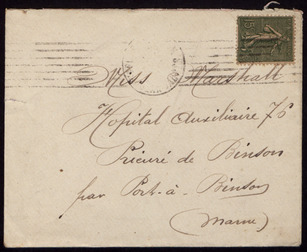 Miss Marshall
Hopital Auxiliaire 76
Prieuré de Binson
par Port-à-Binson
(Marne)